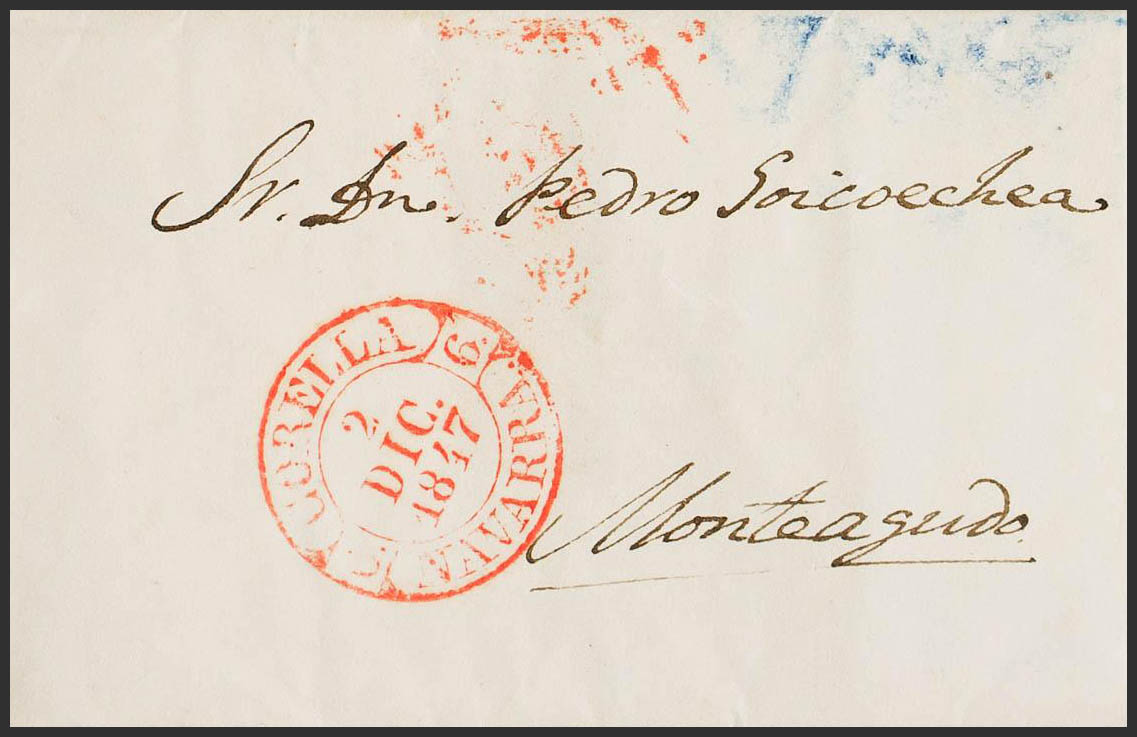 Sr. Dn. Pedro Goicoechea
CORELLA
6
2
DIC.
1847
NAVARRA.
Monteagudo